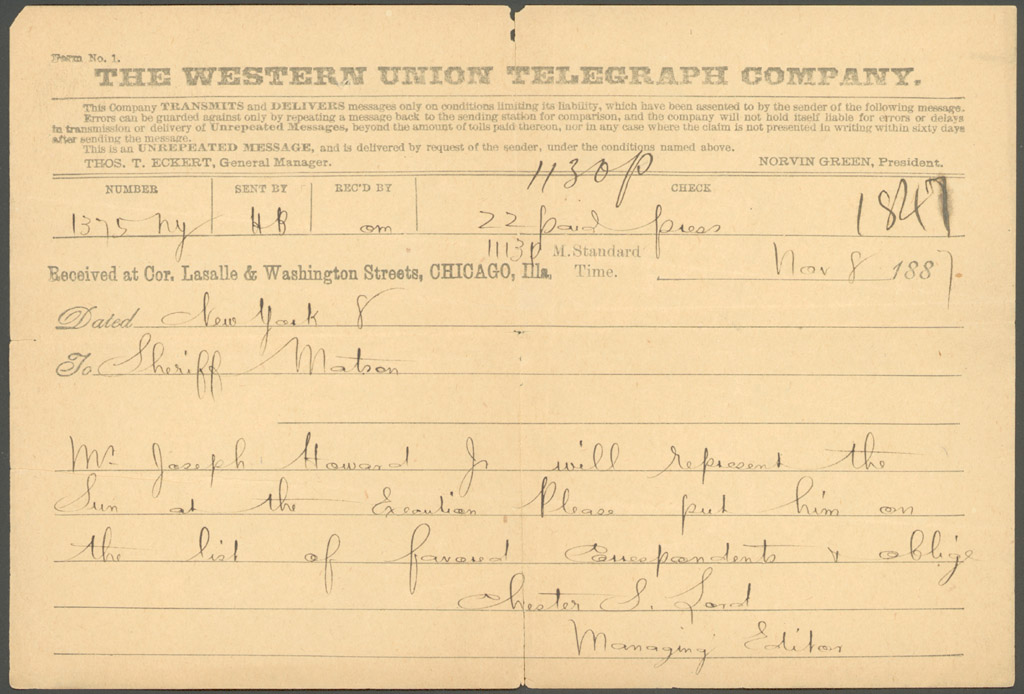 Form No. 1.
THE WESTERN UNION TELEGRAPH COMPANY.
This Company TRANSMITS and DELIVERS messages only on conditions limiting its liability, which have been assented to by the sender of the following message.
Errors can be guarded against only by repeating a message back to the sending station for comparison, and the company will not hold itself liable for errors or delays
in transmission or delivery of Unrepeated Messages, beyond the amount of tolls paid thereon, nor in any case where the claim is not presented in writing within sixty days
after sending the message.
This is an UNREPEATED MESSAGE, and is delivered by request of the sender, under the conditions named above.
THOS. T. ECKERT, General Manager. NORVIN GREEN, President.
1130P
NUMBER SENT BY REC'D BY CHECK
1375 Ny HB om 22 paid press 1847
1113P M. Standard
Received at Cor. Lasalle & Washington Streets, CHICAGO, Ills, Time. Nov 8 1887.
Dated New York 8
To Sheriff Matson
Mr Joseph Howard Jr will represent the
Sun at the Execution Please put him on
the list of favored Correspondents & oblige
Chester S. Lord
Managing Editor